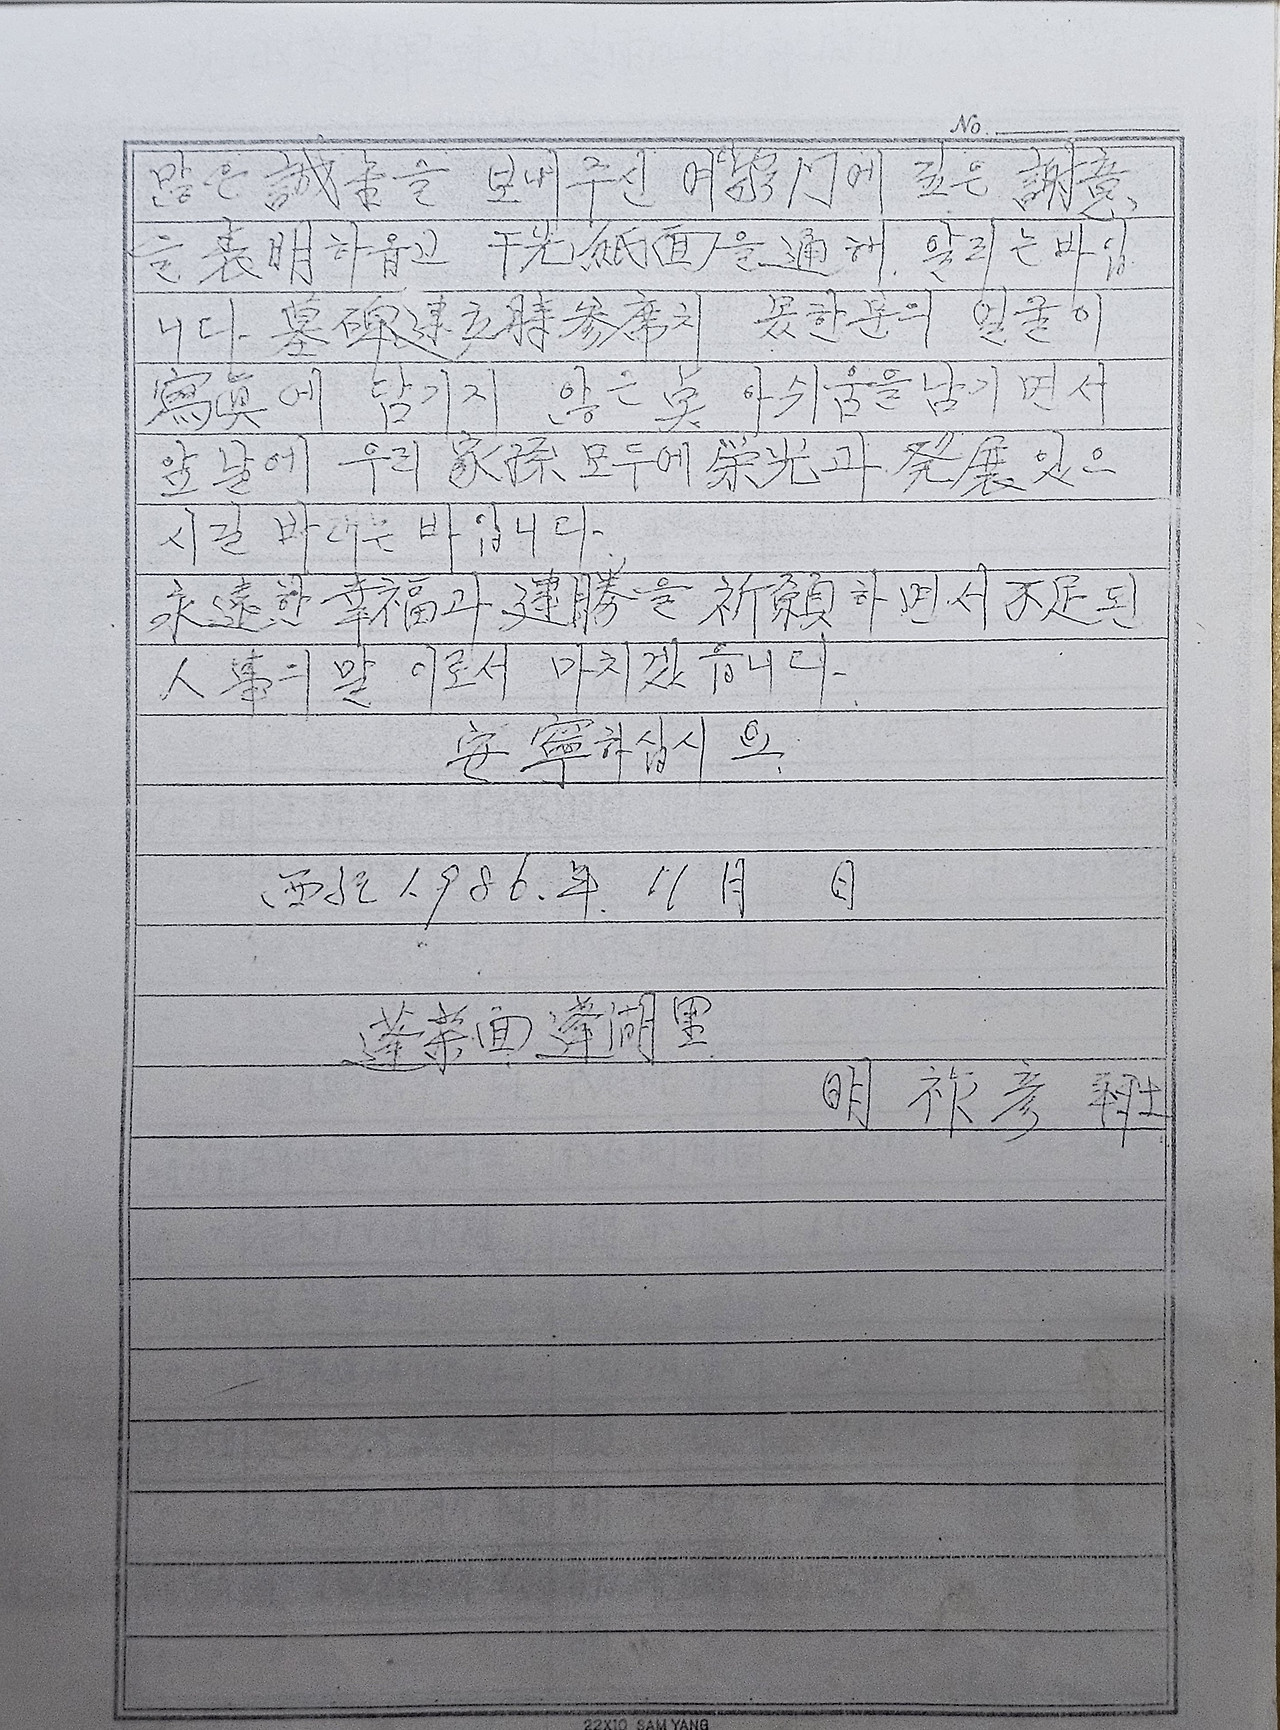 No.
많은 誠金을 보내주신 여 門에 깊은 謝意
을 表明하옵고 紙面을 通해 알리는바입
니다. 墓碑建立時 參席치 못한분의 얼굴이
寫眞에 담기지 않은 点 아쉬움을 남기면서
앞날에 우리 家孫 모두에 榮光과 発展 있으
시길 바라는바입니다.
永遠한 幸福과 健勝을 祈願하면서 不足된
人事의 말 이로서 마치겠읍니다.
安寧하십시요.
西紀 1986.年. 11月 日
蓬莱面 蓬湖里
明 祚彦 拜上
22X10 SAM YANG